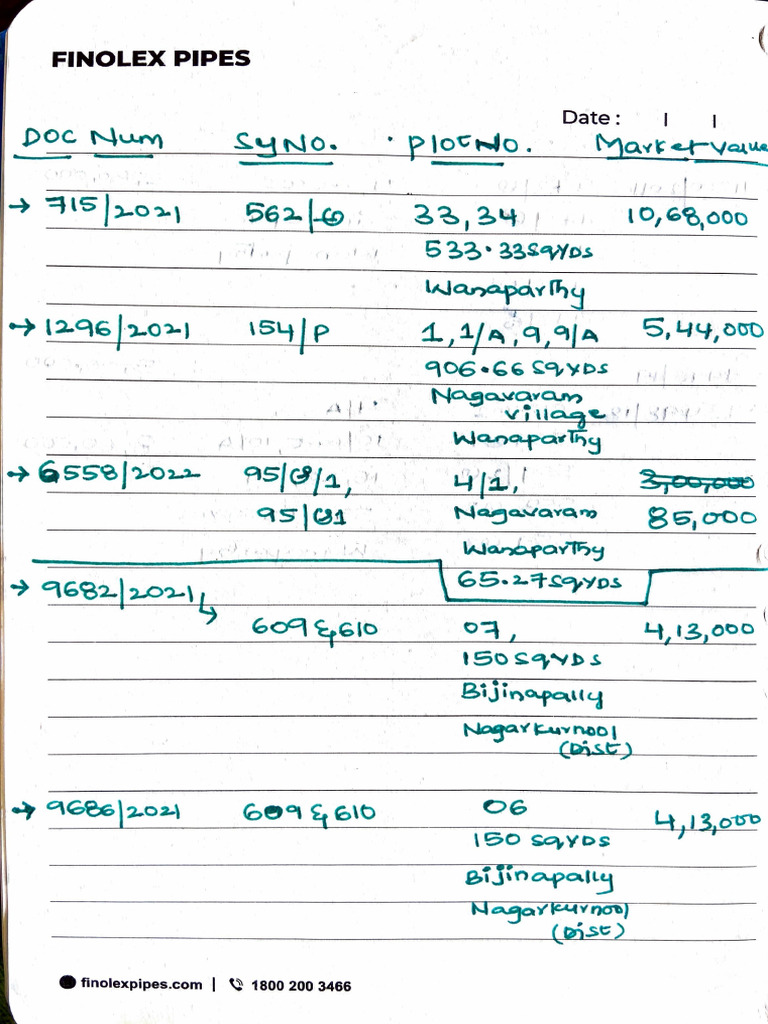 FINOLEX PIPES
Date : | |
DOC Num SyNO. PlotNO. Market value
→ 715/2021 562/ 33,34 10,68,000
533.33 SqYDS
Wanaparthy
→ 1296/2021 154/P 1, 1/A, 9, 9/A 5,44,000
906.66 SqYDS
Nagavaram
village
Wanaparthy
→ 6558/2022 95/ /1, 4/1, 3,00,000
95/ 1 Nagavaram 85,000
Wanaparthy
65.27 SqYDS
→ 9682/2021
609 & 610 07, 4,13,000
150 SqYDS
Bijinapally
Nagarkurnool
(Dist)
→ 9686/2021 609 & 610 06 4,13,000
150 SqYDS
Bijinapally
Nagarkurnool
(Dist)
finolexpipes.com | 1800 200 3466